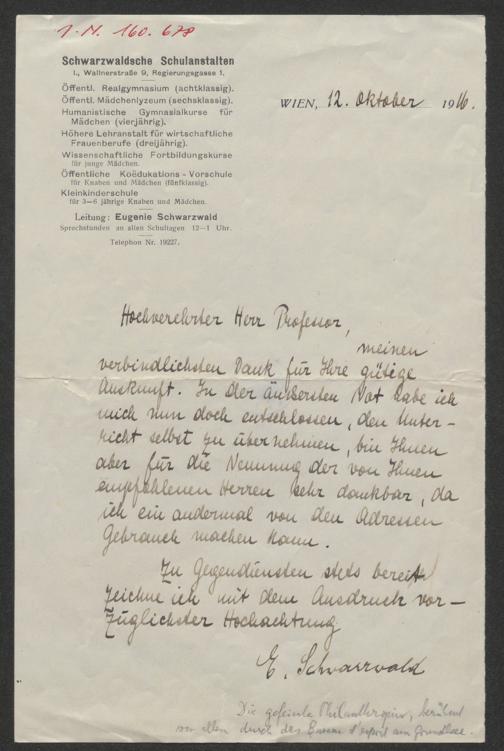 I. N. 160.678
Schwarzwaldsche Schulanstalten
I., Wallnerstraße 9, Regierungsgasse 1.
Öffentl. Realgymnasium (achtklassig).
Öffentl. Mädchenlyzeum (sechsklassig).
Humanistische Gymnasialkurse für
Mädchen (vierjährig).
Höhere Lehranstalt für wirtschaftliche
Frauenberufe (dreijährig).
Wissenschaftliche Fortbildungskurse
für junge Mädchen.
Öffentliche Koëdukations-Vorschule
für Knaben und Mädchen (fünfklassig).
Kleinkinderschule
für 3—6 jährige Knaben und Mädchen.
Leitung: Eugenie Schwarzwald
Sprechstunden an allen Schultagen 12—1 Uhr.
Telephon Nr. 19227.
WIEN, 12. Oktober 1916.
Hochverehrter Herr Professor,
meinen
verbindlichsten Dank für Ihre gütige
Auskunft. In der äußersten Not habe ich
mich nun doch entschlossen, den Unter-
richt selbst zu übernehmen, bin Ihnen
aber für die Nennung der von Ihnen
empfohlenen Herren sehr dankbar, da
ich ein andermal von den Adressen
Gebrauch machen kann.
Zu Gegendiensten stets bereit
zeichne ich mit dem Ausdruck vor-
züglichster Hochachtung
E. Schwarzwald
Die gefeierte Philanthropin, berühmt
vor allem durch das d'esprit am Grundlsee.